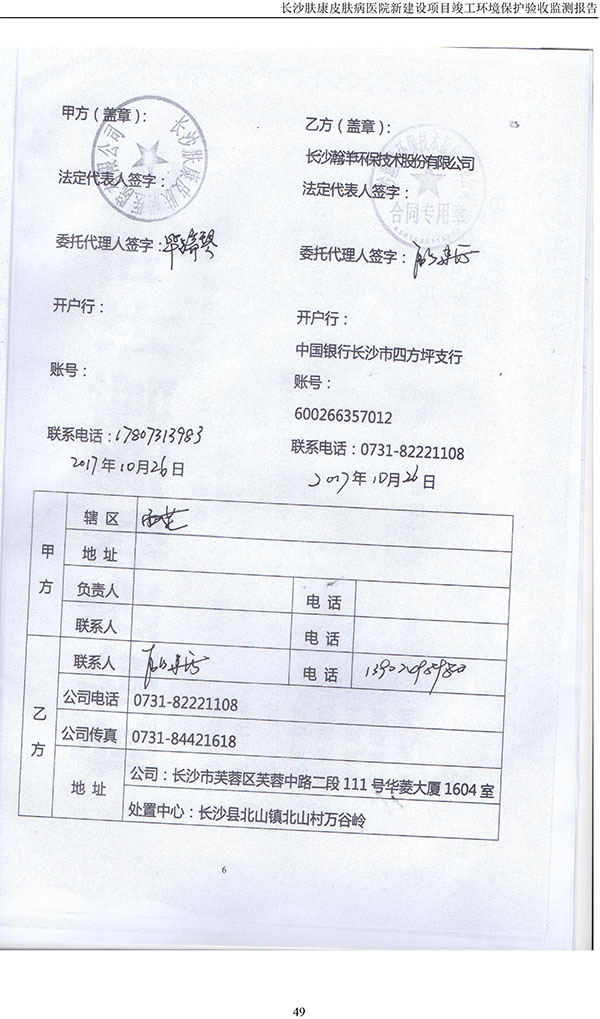 长沙肤康皮肤病医院新建设项目竣工环境保护验收监测报告
甲方（盖章）：
法定代表人签字：
委托代理人签字：
开户行：
账号：
联系电话：17807313983
2017年10月26日
乙方（盖章）：
长沙瀚洋环保技术股份有限公司
法定代表人签字：
合同专用章
委托代理人签字：
开户行：
中国银行长沙市四方坪支行
账号：
600266357012
联系电话：0731-82221108
2017年10月26日
甲方
辖区
地址
负责人 电话
联系人 电话
乙方
联系人 电话
公司电话 0731-82221108
公司传真 0731-84421618
地址 公司：长沙市芙蓉区芙蓉中路二段111号华菱大厦1604室
处置中心：长沙县北山镇北山村万谷岭
6
49